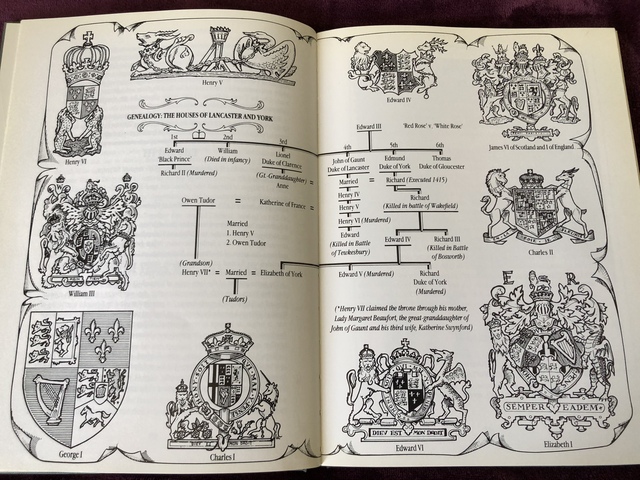 Henry V
Henry VI
GENEALOGY: THE HOUSES OF LANCASTER AND YORK
1st 2nd 3rd
Edward William Lionel
'Black Prince' (Died in infancy) Duke of Clarence
Richard II (Murdered) (Gt. Granddaughter) =
Anne
Owen Tudor = Katherine of France =
Married
1. Henry V
2. Owen Tudor
(Grandson)
Henry VII* = Married = Elizabeth of York
(Tudors)
William III
George I
Charles I
Edward IV
James VI of Scotland and I of England
Edward III 'Red Rose' v. 'White Rose'
4th 5th 6th
John of Gaunt Edmund Thomas
Duke of Lancaster Duke of York Duke of Gloucester
Married = Richard (Executed 1415)
Henry IV Richard
Henry V (Killed in battle of Wakefield)
Henry VI (Murdered)
Edward Edward IV Richard III
(Killed in Battle (Killed in Battle
of Tewkesbury) of Bosworth)
Edward V (Murdered) Richard
Duke of York
(Murdered)
(*Henry VII claimed the throne through his mother,
Lady Margaret Beaufort, the great-granddaughter of
John of Gaunt and his third wife, Katherine Swynford)
Charles II
E R
SEMPER EADEM
Elizabeth I
DIEV EST MON DROIT
Edward VI